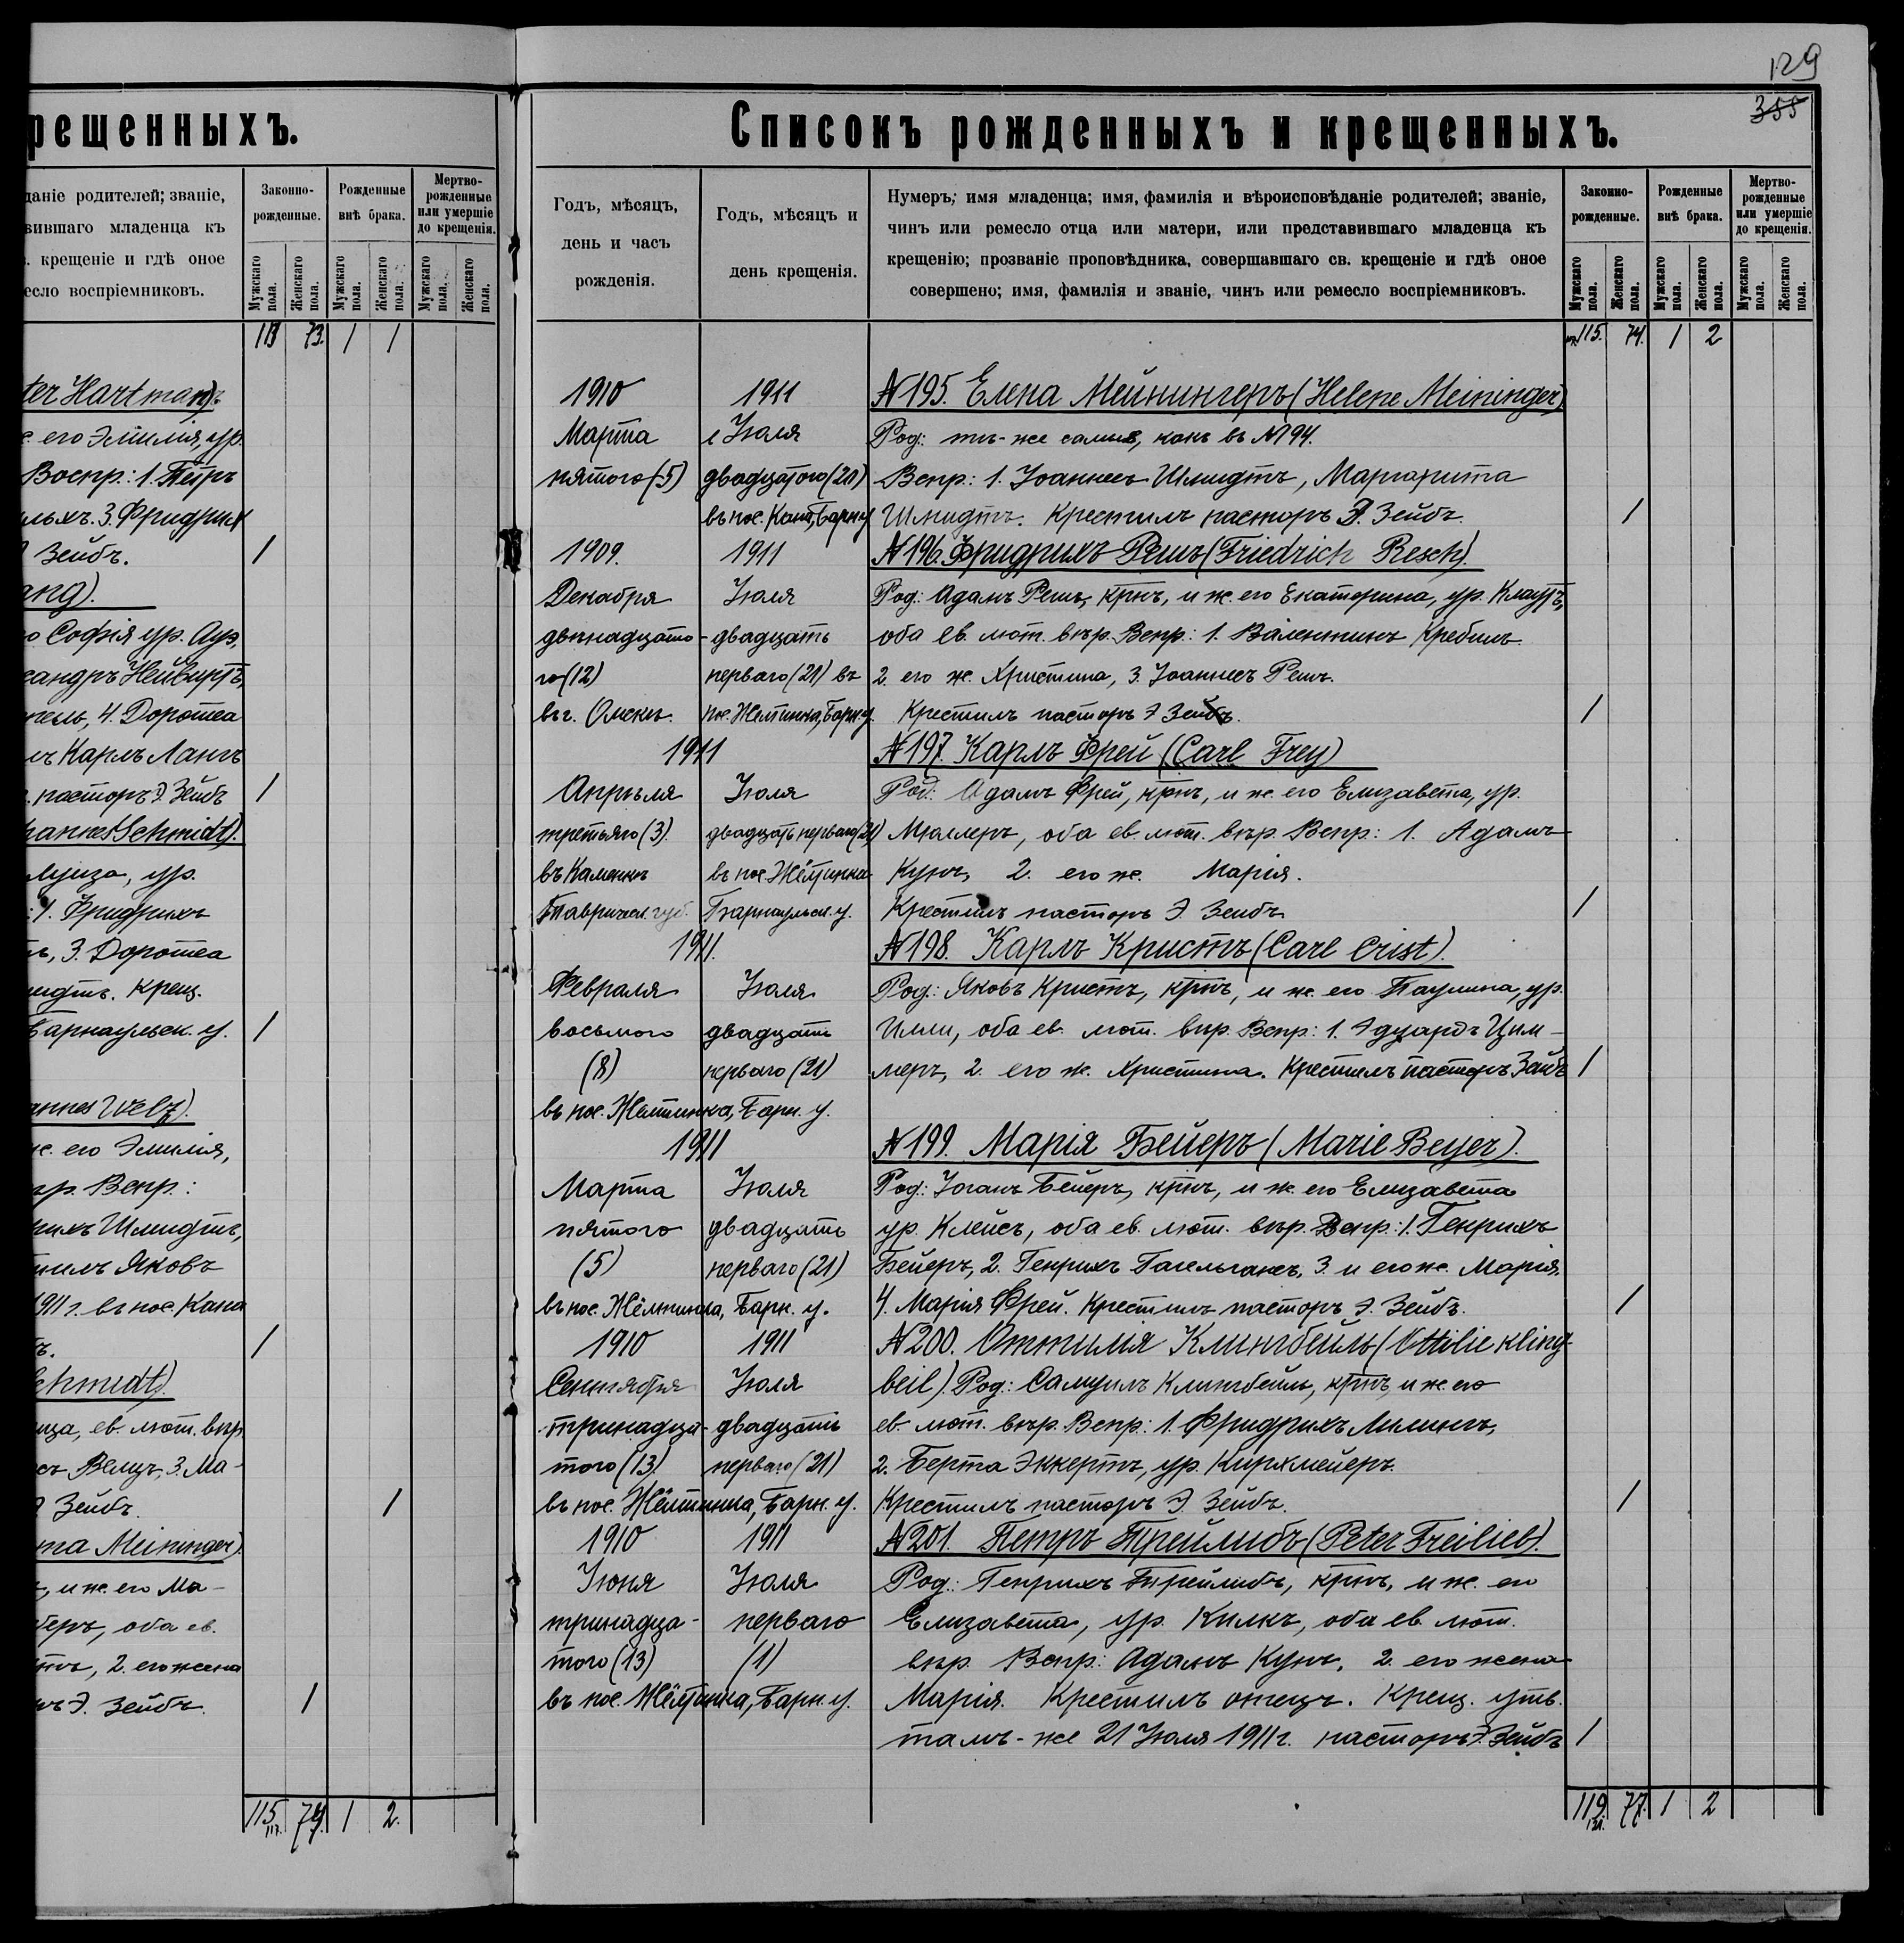 рещенныхъ.
даніе родителей; званіе,
вившаго младенца къ
. крещеніе и гдѣ оное
есло воспріемниковъ.
Законно-
рожденные.
Рожденные
внѣ брака.
Мертво-
рожденные
или умершіе
до крещенія.
Мужскаго
пола.
Женскаго
пола.
Мужскаго
пола.
Женскаго
пола.
Мужскаго
пола.
Женскаго
пола.
113 73. 1 1
ter Hartmann).
его Эмилія, ур.
Воспр: 1. Петръ
льхъ. 3. Фридрих
Зейбъ. 1
ang).
Софія ур. Ауэ,
сандръ Нейвиртъ,
4. Доротеа
лъ Карлъ Лангъ
пасторъ Э. Зейбъ 1
hannes Schmidt).
Луиза, ур.
: 1. Фридрихъ
3. Доротеа
мидтъ. Крещ.
Барнаульск. у. 1
annes Welz).
же. его Эмилія,
ѣр. Вспр:
рихъ Шмидтъ,
тилъ Яковъ
1911 г. въ пос. Кана
ъ. 1
chmidt)
ица, ев. лют. вѣр
съ Вельцъ, 3. Ма-
Зейбъ 1
ma Meininger).
и ж. его Ма-
беръ, оба ев.
2. его жена
ъ Э. Зейбъ. 1
115 74 1 2.
117.
129
355
Списокъ рожденныхъ и крещенныхъ.
Годъ, мѣсяцъ,
день и часъ
рожденія.
Годъ, мѣсяцъ и
день крещенія.
Нумеръ; имя младенца; имя, фамилія и вѣроисповѣданіе родителей; званіе,
чинъ или ремесло отца или матери, или представившаго младенца къ
крещенію; прозваніе проповѣдника, совершавшаго св. крещеніе и гдѣ оное
совершено; имя, фамилія и званіе, чинъ или ремесло воспріемниковъ.
Законно-
рожденные.
Рожденные
внѣ брака.
Мертво-
рожденные
или умершіе
до крещенія.
Мужскаго
пола.
Женскаго
пола.
Мужскаго
пола.
Женскаго
пола.
Мужскаго
пола.
Женскаго
пола.
115. 74. 1 2
1910 1911 №195. Елена Мейнингеръ (Helene Meininger)
Марта Іюля Род: тѣ-же самые, какъ въ №194.
пятого (5) двадцатого (20) Вспр: 1. Іоаннесъ Шмидтъ, Маргарита
въ пос. Кана, Барн. у Шмидтъ. Крестилъ пасторъ Э. Зейбъ. 1
1909. 1911 №196. Фридрихъ Решъ (Friedrich Resch).
Декабря Іюля Род: Адамъ Решъ, крнъ, и ж. его Екатерина, ур. Клаутъ,
двѣнадцато- двадцать оба ев. лют. вѣр. Вспр: 1. Валентинъ Кребель
го (12) перваго (21) въ 2. его ж. Христина, 3. Іоаннесъ Решъ.
въ г. Омскъ. пос. Жёлтинка, Барн. у. Крестилъ пасторъ Э Зейбъ. 1
1911 №197. Карлъ Фрей (Carl Frey)
Апрѣля Іюля Род: Адамъ Фрей, крнъ, и ж. его Елизавета, ур.
третьяго (3) двадцать перваго (21) Мюллеръ, оба ев. лют. вѣр. Вспр: 1. Адамъ
въ Каменкѣ въ пос. Жёлтинка Кунъ, 2. его ж. Марія.
Таврическ. губ. Барнаульск. у. Крестилъ пасторъ Э. Зейбъ 1
1911. №198. Карлъ Кристъ (Carl Crist).
Февраля Іюля Род: Яковъ Кристъ, крнъ, и ж. его Паулина, ур.
восьмого двадцать Илли, оба ев. лют. вѣр. Вспр: 1. Эдуардъ Цим-
(8) перваго (21) меръ, 2. его ж. Христина. Крестилъ пасторъ Зейбъ 1
въ пос. Жёлтинка, Барн. у.
1911 №199. Марія Бейеръ (Marie Beyer).
Марта Іюля Род: Іоганъ Бейеръ, крнъ, и ж. его Елизавета
пятого двадцать ур. Клейсъ, оба ев. лют. вѣр. Вспр: 1. Генрихъ
(5) перваго (21) Бейеръ, 2. Генрихъ Гасельгансъ, 3. и его ж. Марія,
въ пос. Жёлтинка, Барн. у. 4. Марія Фрей. Крестилъ пасторъ Э. Зейбъ. 1
1910 1911 №200. Оттилія Клингбейль (Ottilie Kling-
Сентября Іюля beil). Род: Самуилъ Клингбейль, крнъ, и ж. его
тринадца- двадцать ев. лют. вѣр. Вспр: 1. Фридрихъ Милингъ,
того (13) перваго (21) 2. Берта Эккертъ, ур. Кирхмейеръ.
въ пос. Жёлтинка, Барн. у. Крестилъ пасторъ Э. Зейбъ. 1
1910 1911 №201. Петръ Трейлибъ (Peter Treilieb).
Іюня Іюля Род: Генрихъ Трейлибъ, крнъ, и ж. его
тринадца- перваго Елизавета, ур. Килкъ, оба ев. лют.
того (13) (1) вѣр. Вспр: Адамъ Кунъ, 2. его жена
въ пос. Жёлтинка, Барн. у. Марія. Крестилъ отецъ. Крещ. утв.
тамъ-же 21 Іюля 1911 г. пасторъ Э. Зейбъ 1
119. 77. 1 2
121.